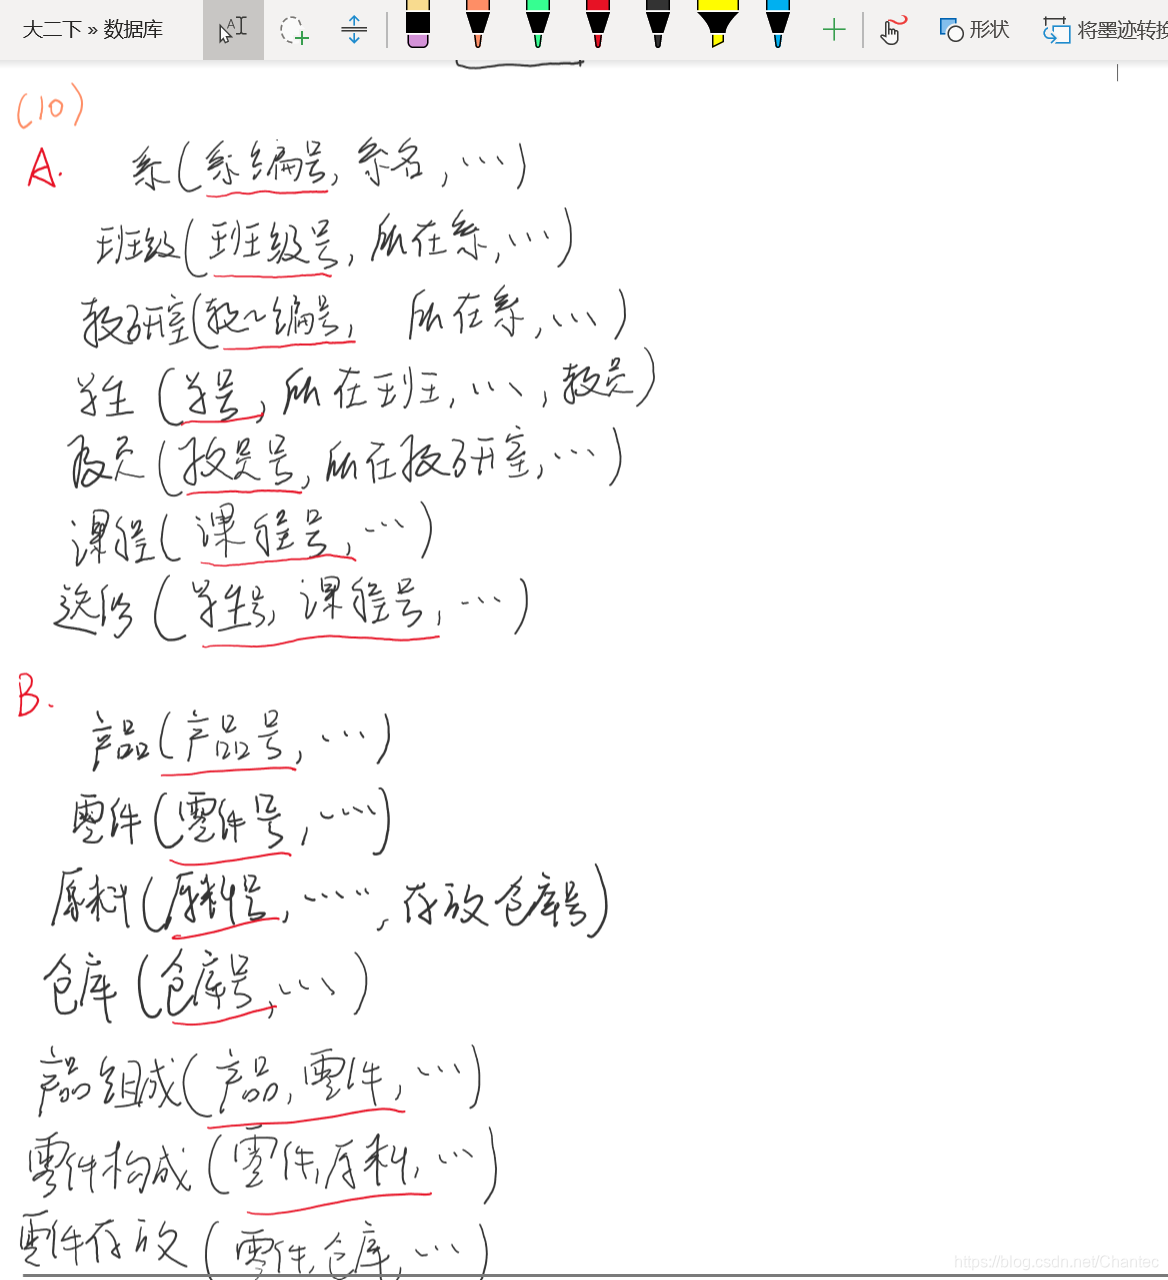 大二下 » 数据库
形状
将墨迹转换
(10)
A.
系(系编号, 系名, ...)
班级(班级号, 所在系, ...)
教研室(教~编号, 所在系, ...)
学生(学号, 所在班, ..., 教员)
教员(教员号, 所在教研室, ...)
课程(课程号, ...)
选修(学生号, 课程号, ...)
B.
产品(产品号, ...)
零件(零件号, ....)
原料(原料号, ......, 存放仓库号)
仓库(仓库号, ...)
产品组成(产品, 零件, ...)
零件构成(零件, 原料, ...)
零件存放(零件, 仓库, ...)
https://blog.csdn.net/Chantec